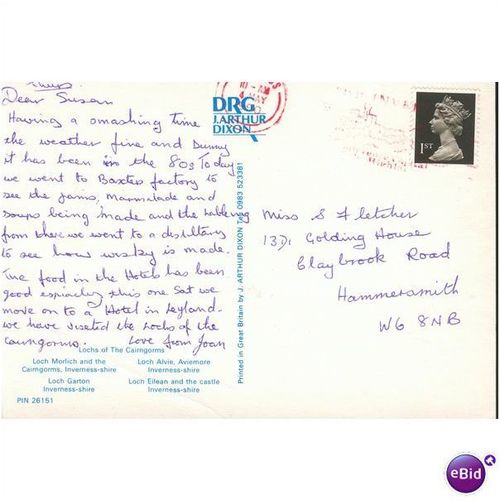 Thurs.
Dear Susan
Having a smashing time
the weather fine and sunny
it has been in the 80s Today
we went to Baxters factory to
see the Jams, Marmalade and
soups being made and the labeling
from there we went to a distillery
to see how wisky is made.
The food in the Hotels has been
good espicialy this one Sat we
move on to a Hotel in Leyland.
we have visited the Lochs of the
Cairngorms. Love from Joan
Lochs of The Cairngorms
Loch Morlich and the Cairngorms, Inverness-shire
Loch Alvie, Aviemore Inverness-shire
Loch Garton Inverness-shire
Loch Eilean and the castle Inverness-shire
PIN 26151
DRG
J. ARTHUR
DIXON
Printed in Great Britain by J. ARTHUR DIXON Tel: 0983 523381
10-AM
MAY
1ST
Miss S Fletcher
13D, Golding House
Claybrook Road
Hammersmith
W6 8NB
eBid